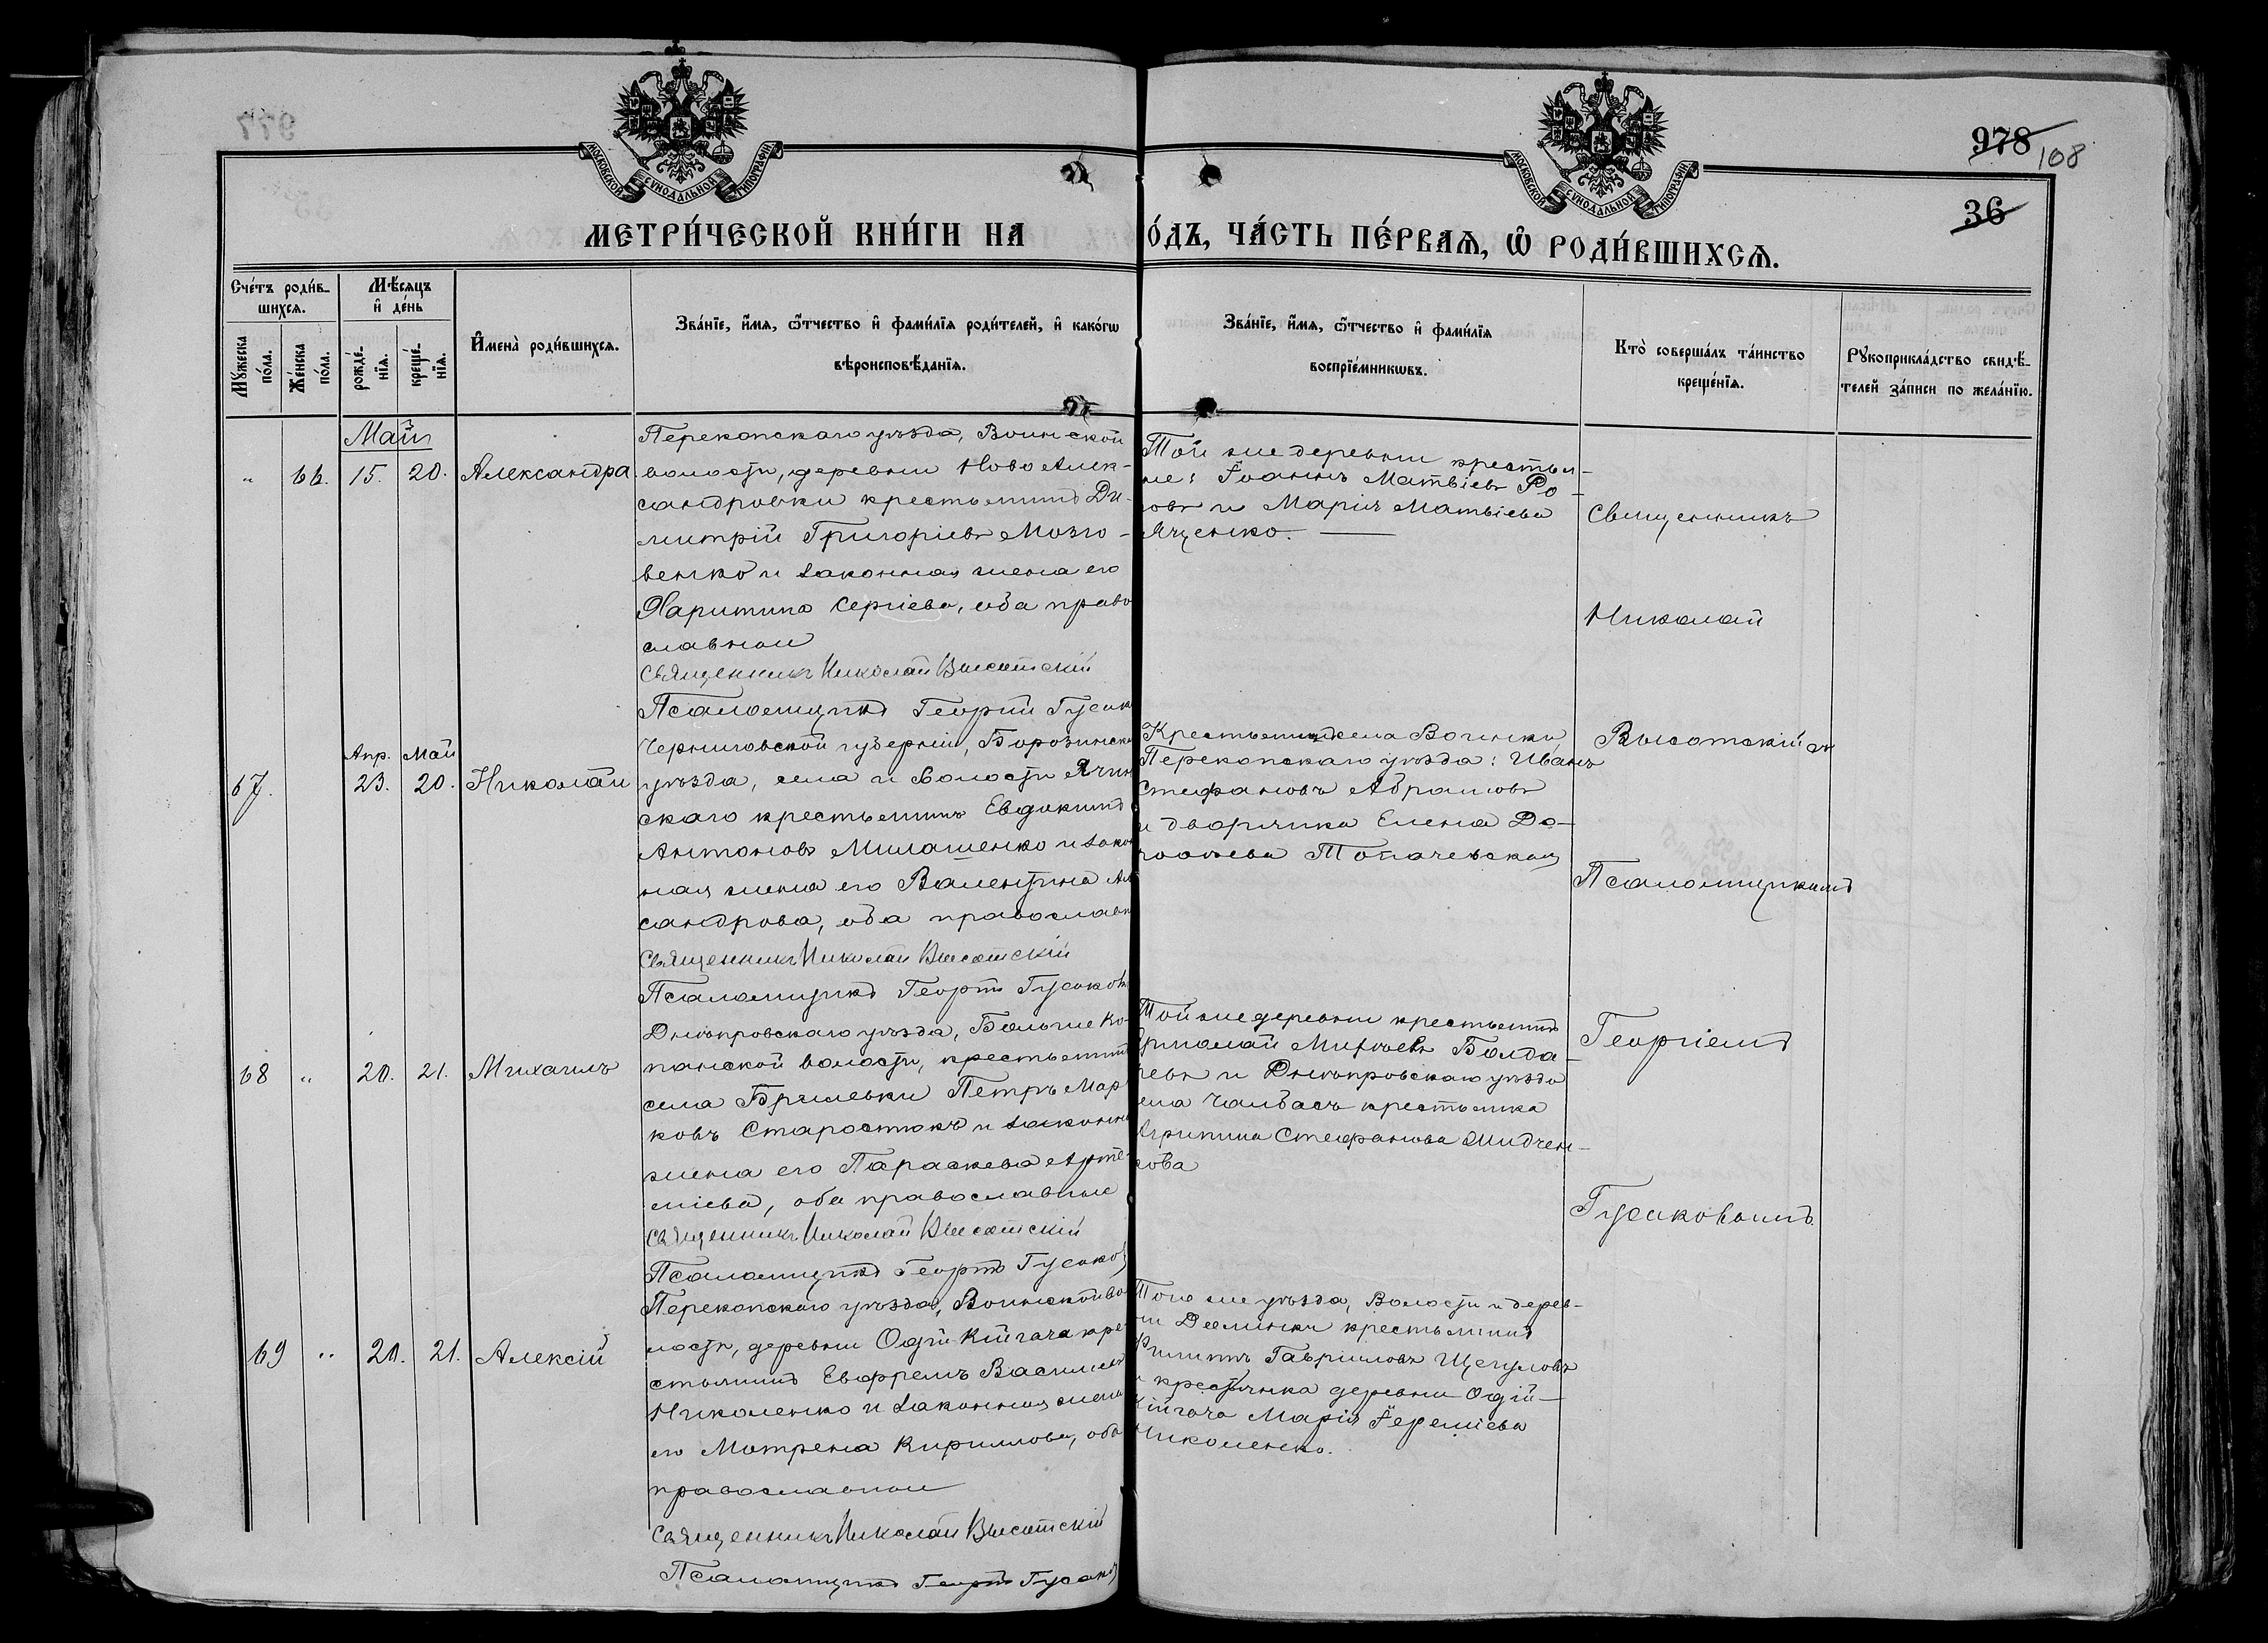 977
978 108
36
МОСКОВСКОЙ СѴНОДАЛЬНОЙ ТИПОГРАФІИ
МОСКОВСКОЙ СѴНОДАЛЬНОЙ ТИПОГРАФІИ
МЕТРИ́ЧЕСКОЙ КНИ́ГИ НА
О́ДЪ, ЧА́СТЬ ПЕ́РВАѦ, Ѽ РОДИ́ВШИХСѦ.
Сче́тъ роди́в-
шихсѧ.
Мꙋ́жеска
по́ла.
Же́нска
по́ла.
Мѣ́сѧцъ
и҆ де́нь
рожде́-
нїѧ.
креще́-
нїѧ.
И҆мена̀ роди́вшихсѧ.
Зва́нїе, и҆́мѧ, ѻ҆́тчество и҆ фами́лїѧ роди́телей, и҆ како́гѡ
вѣроисповѣ́данїѧ.
Зва́нїе, и҆́мѧ, ѻ҆́тчество и҆ фами́лїѧ
воспрїе́мникѡвъ.
Кто̀ соверша́лъ та́инство
креще́нїѧ.
Рꙋкоприкла́дство свидѣ́-
телей за́писи по жела́нїю.
Май
" 66. 15. 20. Александра
Перекопскаго уѣзда, Воинской
волости, деревни Ново Алек-
сандровки крестьянинъ Ди-
митрій Григоріевъ Мозго-
венко и законная жена его
Харитина Сергіева, оба право
славные
Священникъ Николай Высотскій
Псаломщикъ Георгій Гусак
Той же деревни крестья-
не: Іоаннъ Матвіевъ Ро-
овъ и Марія Матвіева
Яценко.
Апр. Май
67. 23. 20. Николай
Черниговской губерніи, Борозинска
уѣзда, села и волости Ячин
скаго крестьянинъ Евдокимъ
Антоновъ Милашенко и закон
ная жена его Валентина Ал
сандрова, оба православн
Священникъ Николай Высотскій
Псаломщикъ Георгій Гусаковъ
Крестьянинъ села Воинки
Перекопскаго уѣзда: Иванъ
Стефановъ Абрамовъ
и дворянка Елена До-
Топачевская
68 " 20. 21. Михаилъ
Днѣпровскаго уѣзда, Больше Ко-
панской волости, крестьянинъ
села Брилевки Петръ Мар
ковъ Старостюкъ и законн
жена его Параскева Арте-
міева, оба православные
Священникъ Николай Высотскій
Псаломщикъ Георгій Гусаков
Той же деревни крестьянинъ
Ермолай Болда-
ревъ и Днѣпровскаго уѣзда
ела Чалбасъ крестьянка
Агрипина Стефанова Мидчен-
кова
69 " 20. 21. Алексій
Перекопскаго уѣзда, Воинской во
лости, деревни Одги Кійгача кре-
стьянинъ Евфремъ Василіев
Николенко и законная жена
его Матрена Кириллова, оба
православные
Священникъ Николай Высотскій
Псаломщикъ Георгій Гусаков
Того же уѣзда, волости и дерев-
ни крестьянинъ
Филиппъ Гавриловъ Щегуловъ
и крестьянка деревни Одгій-
Кійгача Марія Іереміева
Николенко.
Священникъ
Николай
Высотскій съ
Псаломщикомъ
Георгіемъ
Гусаковымъ.